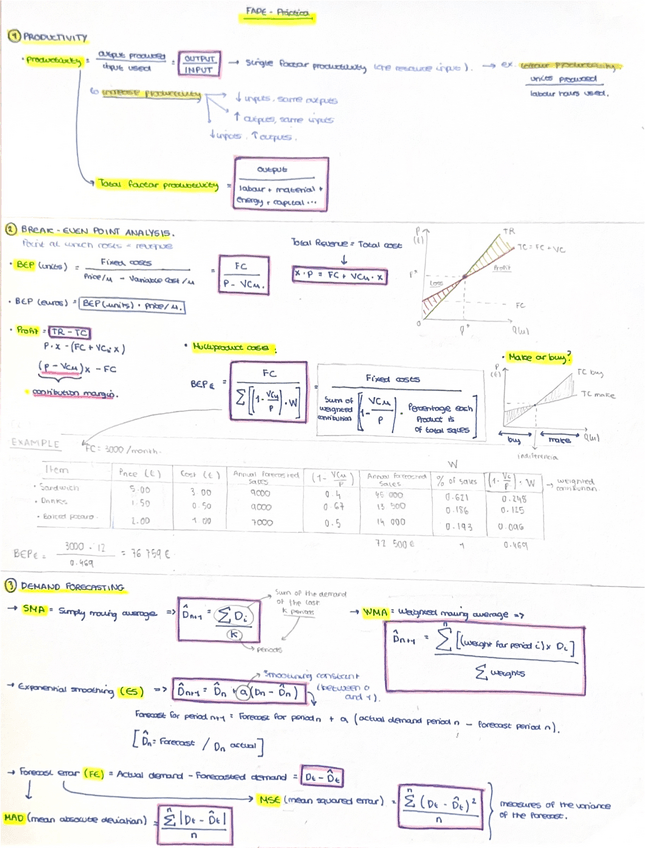 FADE - Práctica
① PRODUCTIVITY
• Productivity = output produced / input used = OUTPUT / INPUT → Single factor productivity (one resource input). → ex. labour productivity
units produced / labour hours used.
↳ increase productivity → ↓ inputs, same outputs
↑ outputs, same inputs
↓ inputs, ↑ outputs.
→ Total factor productivity = output / labour + material + energy + capital ...
② BREAK-EVEN POINT ANALYSIS.
Point at which costs = revenue
• BEP (units) = Fixed costs / Price/u - Variable cost/u = FC / P - VCu.
Total Revenue = Total cost
x · P = FC + VCu · x
P (€)
TR
TC = FC + VC
Profit
Loss
P*
FC
0
q*
Q(u)
• BEP (euros) = BEP (units) · Price/u.
• Profit = TR - TC
P·x - (FC + VCu·x)
(P - VCu)x - FC
• contribution margin.
• Multiproduct cases:
BEP€ = FC / Σ[(1 - VCu/P) · W] = Fixed costs / Sum of weighted contribution [(1 - VCu/P) · Percentage each Product is of total sales]
• Make or buy?
P (€)
TC buy
TC make
buy
make
Q(u)
indiferencia
EXAMPLE
FC = 3000 / month.
W
Item Price (€) Cost (€) Annual forecasted sales (1 - VCu/P) Annual forecasted sales % of sales (1 - Vc/P) · W → weighted contribution
• Sandwich 5.00 3.00 9.000 0.4 45 000 0.621 0.248
• Drinks 1.50 0.50 9.000 0.67 13 500 0.186 0.125
• Baked potato 2.00 1.00 7.000 0.5 14 000 0.193 0.096
72 500 € 1 0.469
BEP€ = 3000 · 12 / 0.469 = 76 759 €
③ DEMAND FORECASTING
→ SMA = Simply moving average => D̂n+1 = Σ Di / k
Sum of the demand of the last k periods
periods
→ WMA = Weighted moving average =>
D̂n+1 = Σⁿ [(weight for period i) x Di] / Σ weights
→ Exponential smoothing (ES) => D̂n+1 = D̂n + a (Dn - D̂n)
Smoothing constant (between 0 and 1).
Forecast for period n+1 = Forecast for period n + a (actual demand period n - forecast period n).
[D̂n = Forecast / Dn actual]
→ Forecast error (FE) = Actual demand - Forecasted demand = Dt - D̂t
→ MSE (mean squared error) = Σⁿ (Dt - D̂t)² / n
measures of the variance of the forecast.
MAD (mean absolute deviation) = Σⁿ |Dt - D̂t| / n